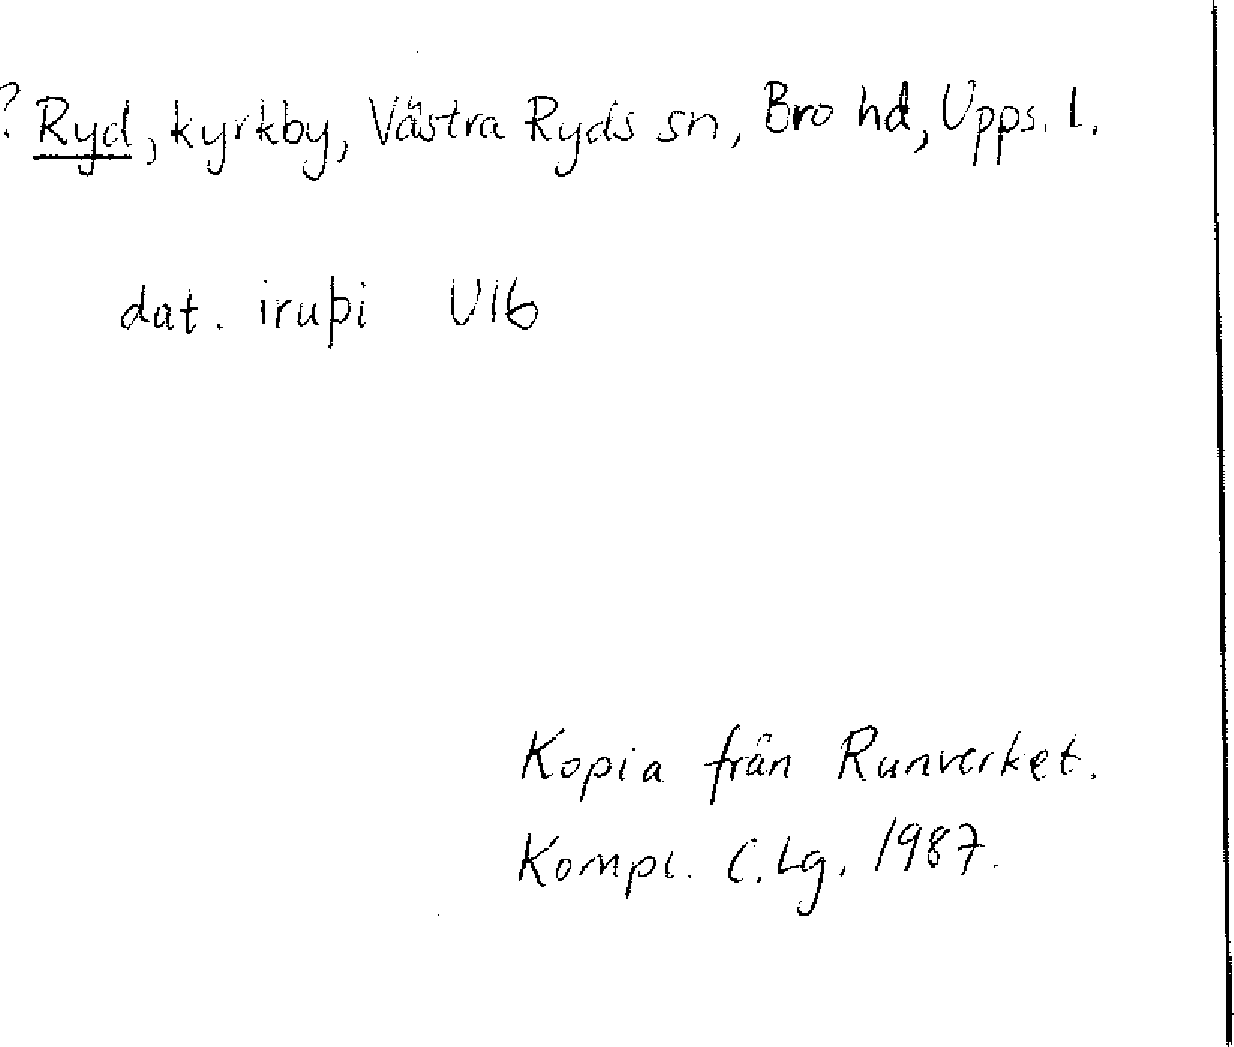 ? Ryd, kyrkby, Västra Ryds sn, Bro hd, Upps. l.
dat. iruþi U16
Kopia från Runverket.
Kompl. C.Lg. 1987.